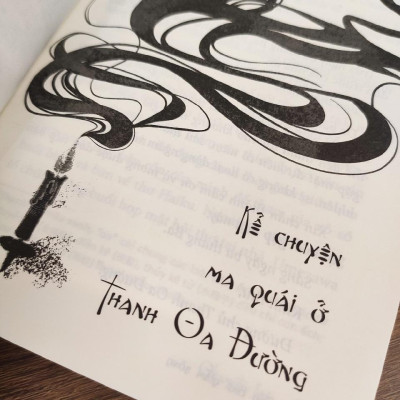 Kể chuyện
ma quái ở
Thanh Oa Đường